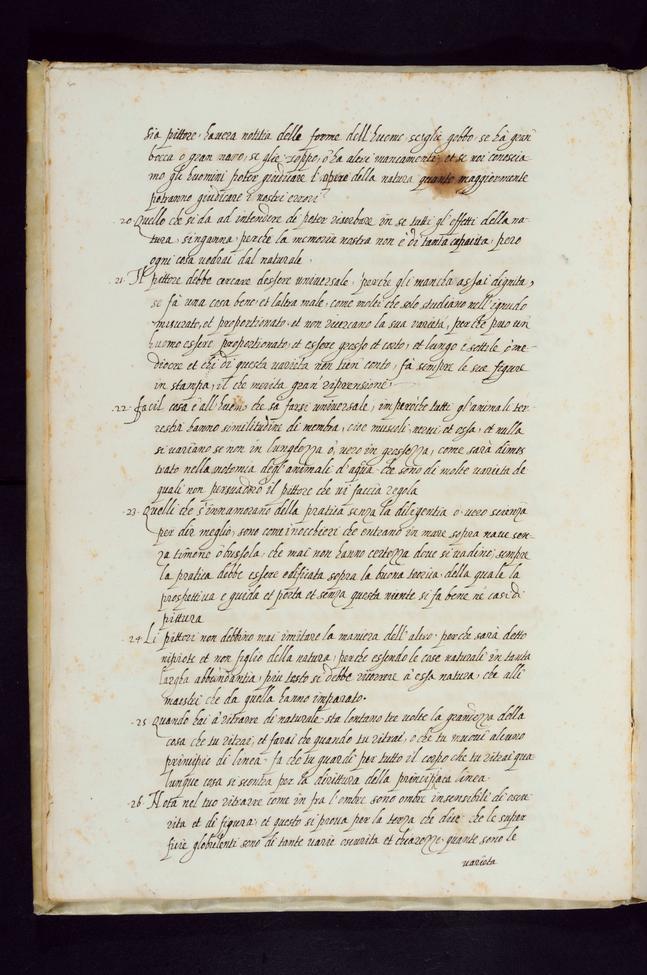 sia pittore, havera notitia delle forme dell huomo se glie gobbo, se hà gran
bocca o gran naso, se glie zoppo, ò ha altri mancamenti, et se noi conoscia-
mo gli huomini poter giudicare l'opere della natura quanto maggiormente
potranno giudicare i nostri errori
20 Quello che si da ad intendere di poter riserbare in se tutti gl'effetti della na-
tura, s'inganna, perche la memoria nostra non è di tanta capacita, pero
ogni cosa vedrai dal naturale.
21. Il pittore debbe cercare d'essere universale, perche gli manca assai dignita,
se fà una cosa bene, et l'altra male, come molti che solo studiano nell'ignudo
misurato, et proportionato, et non ricercano la sua varietà, perche può un
huomo essere proportionato, et essere grosso et corto, et lungo e sottile ò me-
diocre et chi di questa varietà non tien conto, fà sempre le sue figure
in stampa, il che merita gran riprensione
22. Facil cosa è all'huomo che sa farsi universale, imperoche tutti gl'animali ter-
restri hanno similitudine di membra, cioe muscoli, nervi et ossa, et nulla
si variano se non in lunghezza ò, vero in grossezza, come sarà dimos
trato nella notomia degl'animali d'aqua che sono di molte varieta de
quali non persuaderò il pittore che vi faccia regola
23. Quelli che s'innamorano della pratica senza la diligentia o vero scienza
per dir meglio, sono come i nocchieri che entrano in mare sopra nave sen-
za timone ò bussola, che mai non hanno certezza dove si vadino, sempre
la pratica debbe essere edificata sopra la buona teorica, della quale la
prospettiva e guida et porta et senza questa niente si fa bene ne casi di
pittura
24. Li pittori non debbino mai imitare la maniera dell'altro perche sarà detto
nipote et non figlio della natura, perche essendo le cose naturali in tanta
largha abbundantia, piu tosto si debbe ricorrere à essa natura, che alli
maestri che da quella hanno imparato.
25 Quando hai à ritrarre di naturale sta lontano tre volte la grandezza della
cosa che tu ritrai, et farai che quando tu ritrai, o che tu muovi alcuno
principio di linea, fa che tu guardi per tutto il corpo che tu ritrai qua
lunque cosa si scontra per la dirittura della principiata linea.
26 Nota nel tuo ritrarre come in fra l'ombre sono ombre insensibili di oscu-
rità et di figura, et questo si prova per la terza che dice che le super
ficie globulenti sono di tante varie oscurità et chiarezze quante sono le
varieta